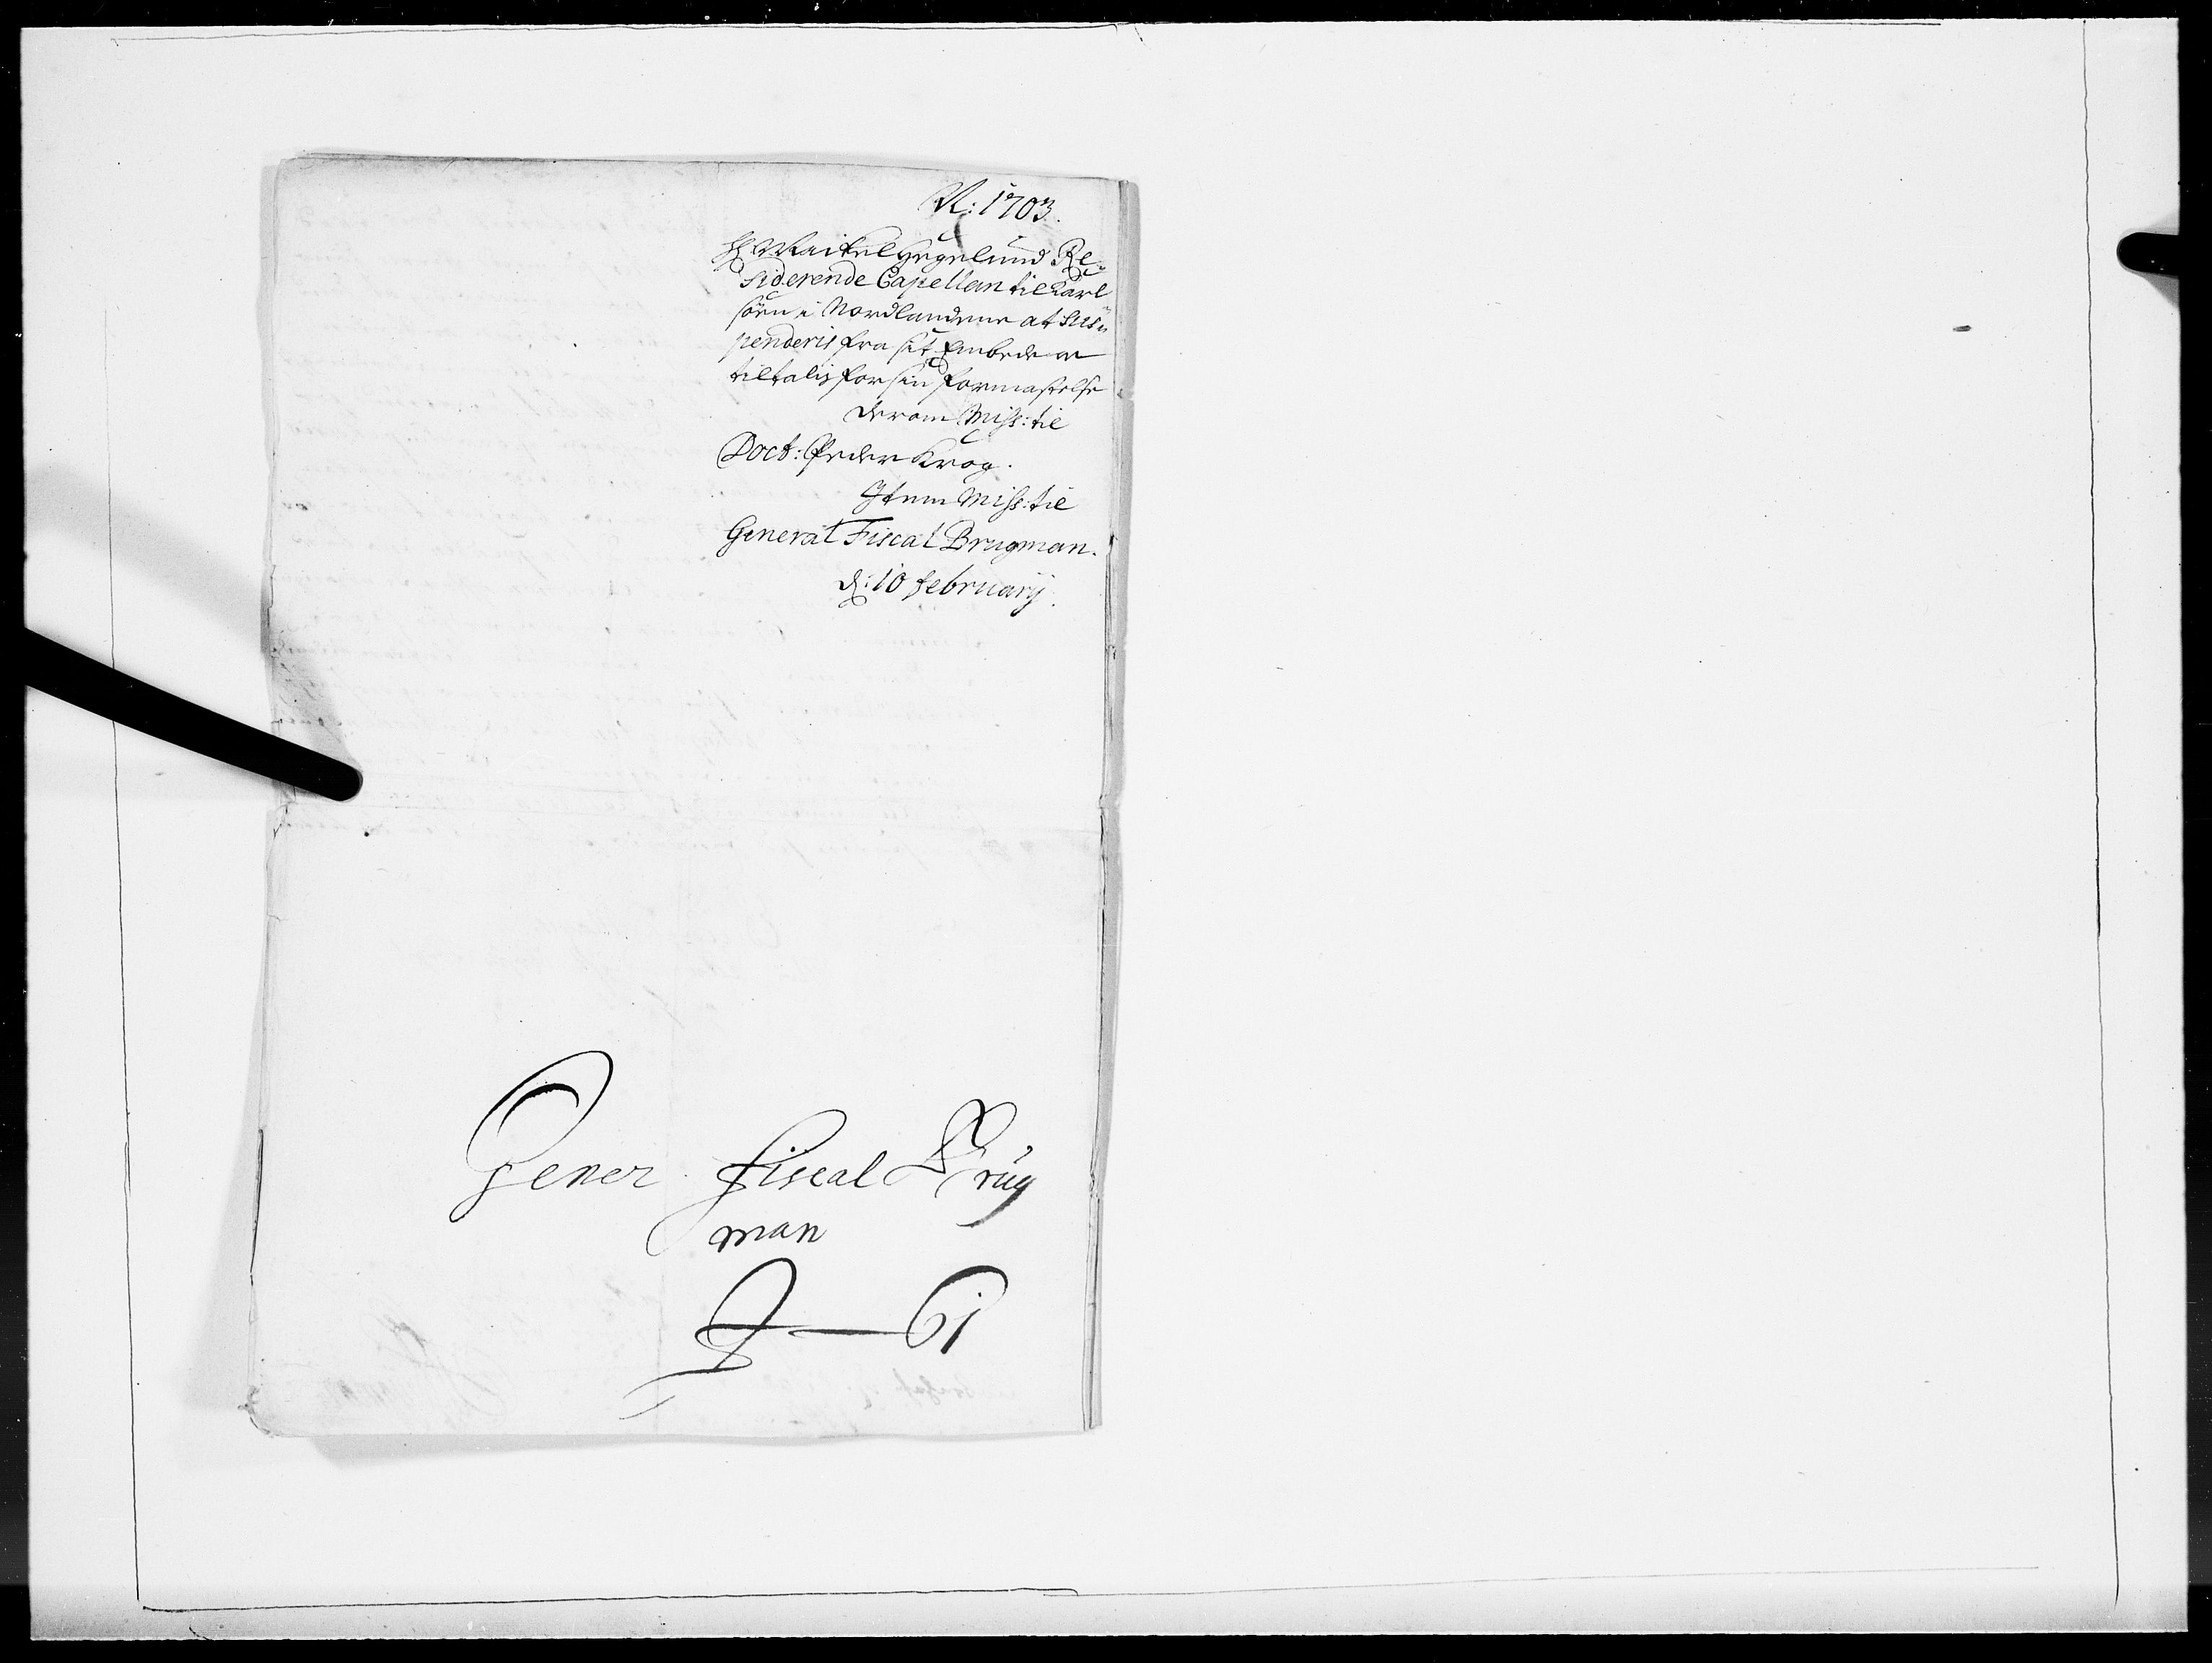 A: 1703.
H Maikel Hegelund Re-
siderende Capellan til Karl
söen i Nordlandene at sus-
penderis fra sit Embede oc
tiltalis for sin formastelse
derom Miss: til
Doct: Peder Krog.
Item Miss: til
General Fiscal Brugman.
d: 10 february.
Gener. fiscal Brüg
man
61